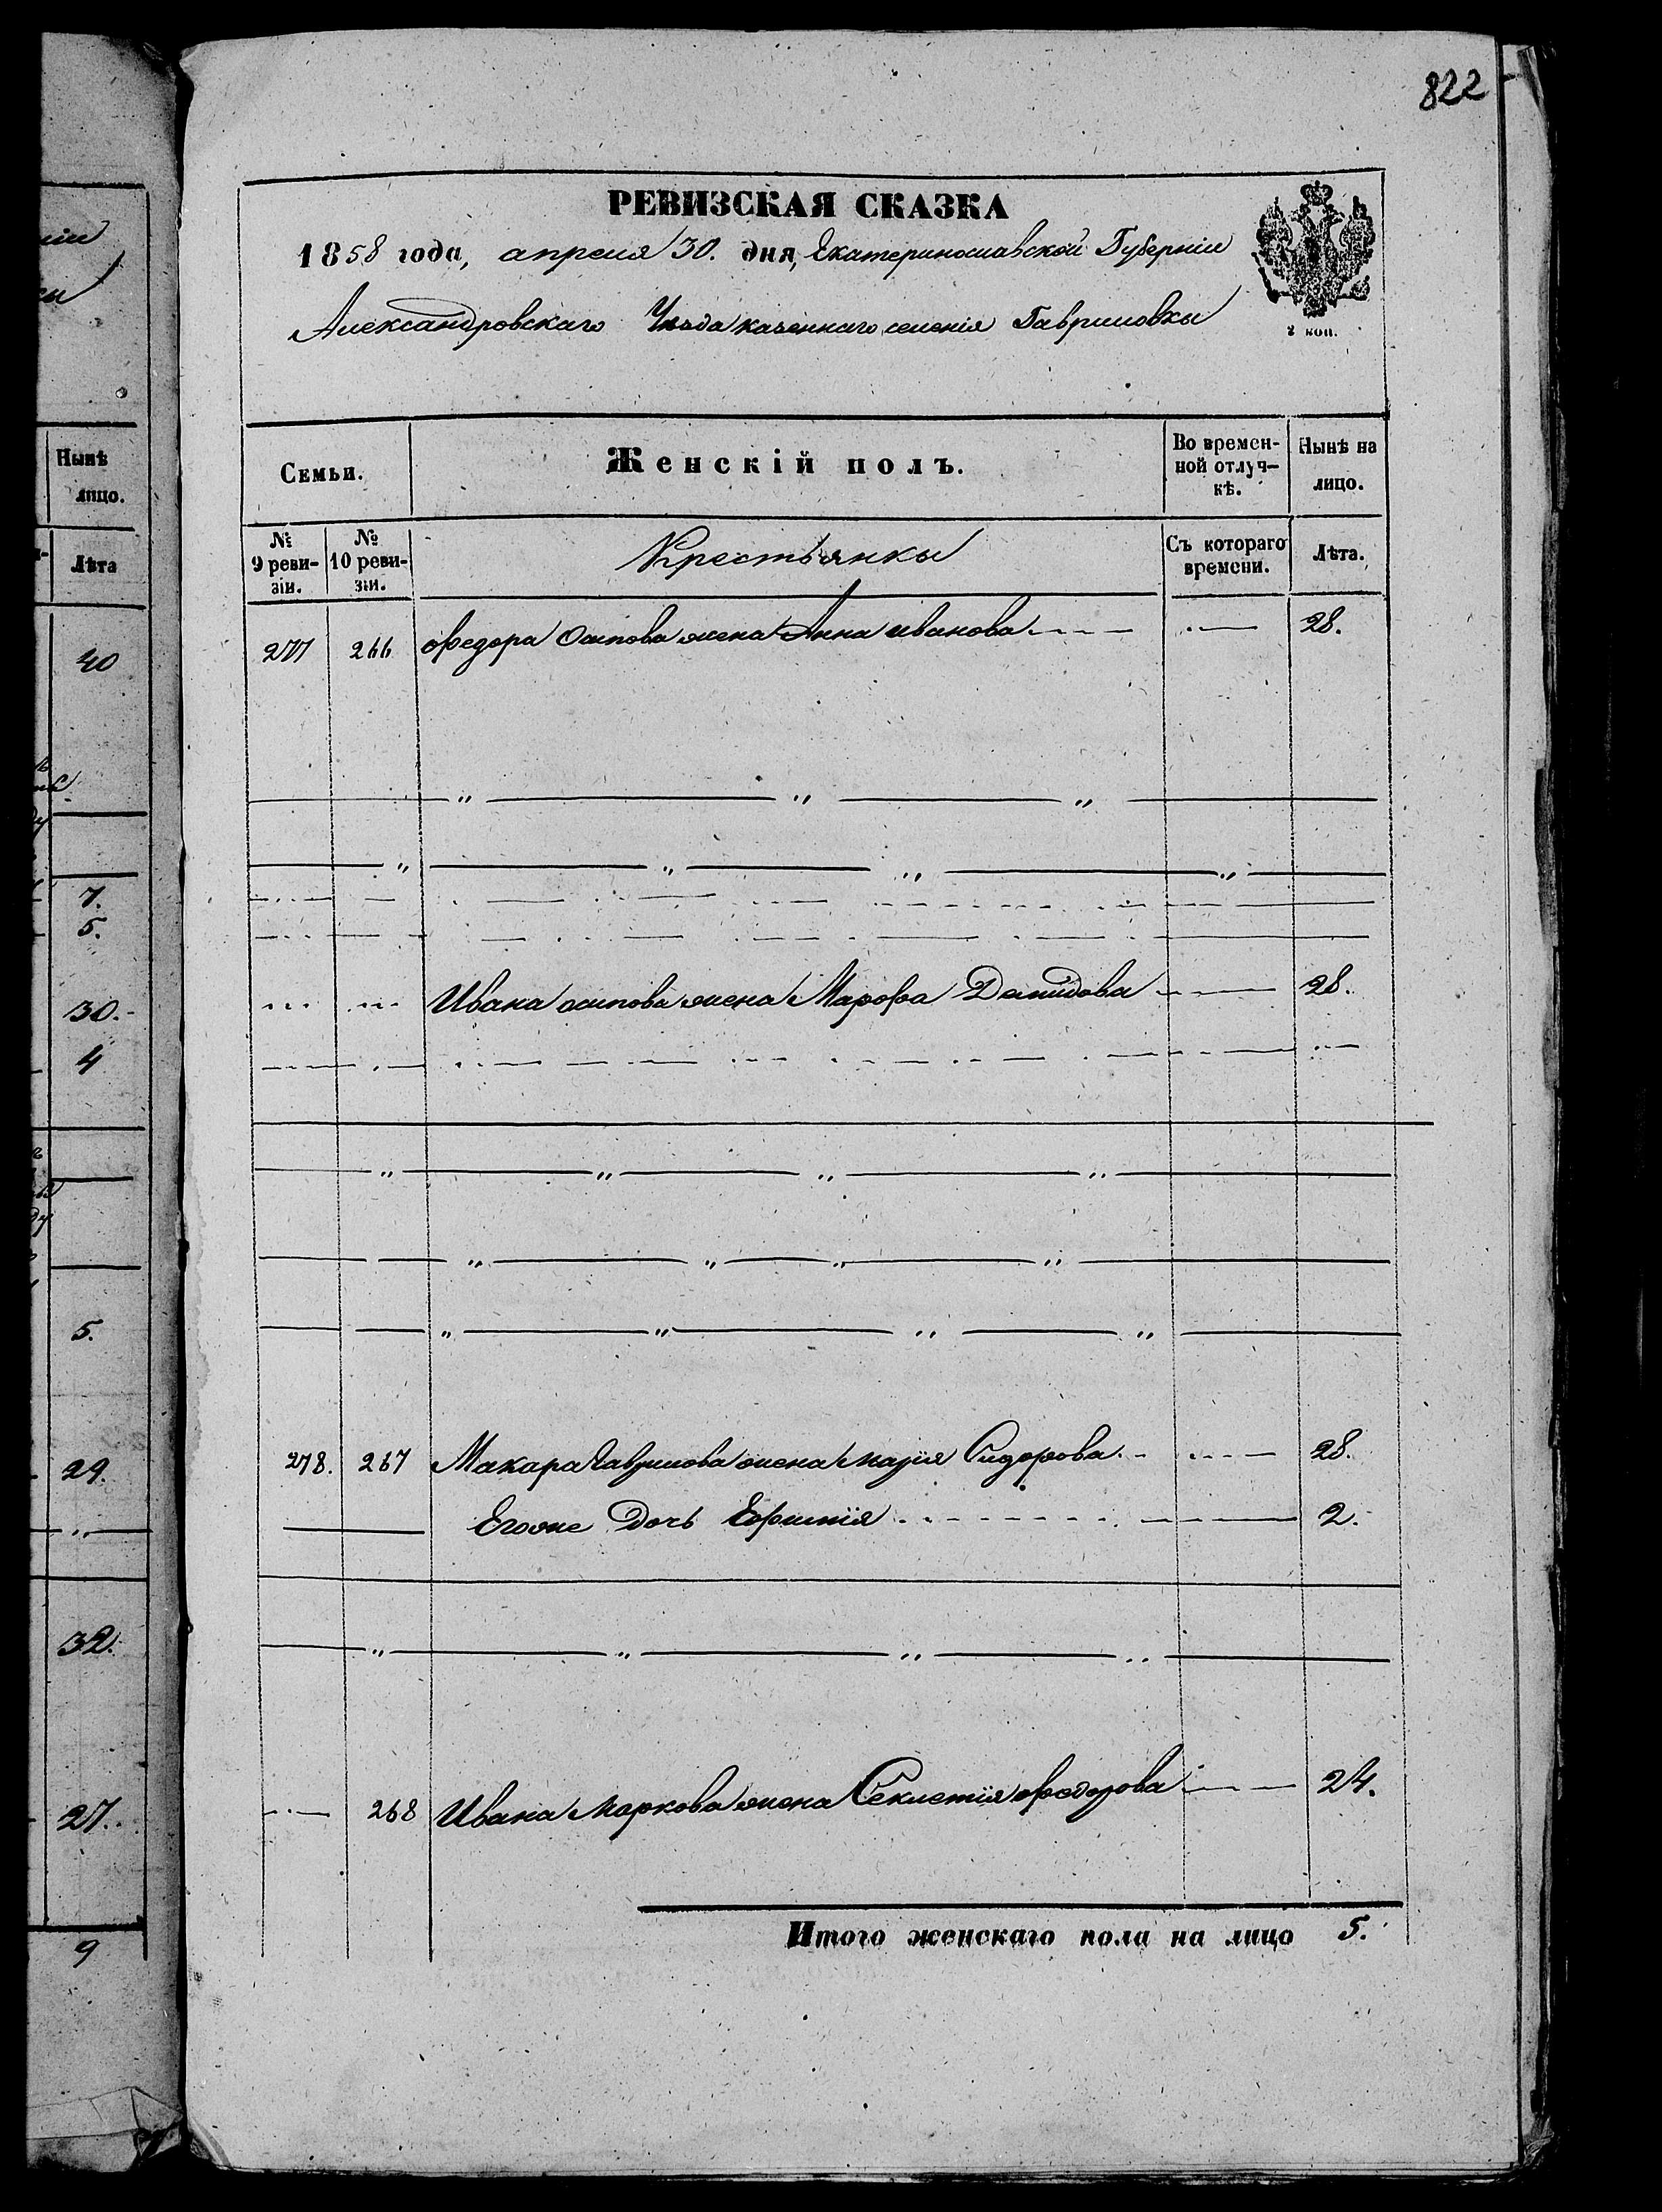 822
РЕВИЗСКАЯ СКАЗКА
1858 года, апреля 30. дня, Екатеринославской Губерніи
Александровскаго Уѣзда казеннаго селенія Гавриловки
2 коп.
Семьи.
Женскій полъ.
Во времен-
ной отлуч-
кѣ.
Нынѣ на
лицо.
№
9 реви-
зіи.
№
10 реви-
зіи.
Крестьянки
Съ котораго
времени.
Лѣта.
277 266 Федора Осипова жена Анна иванова 28.
Ивана осипова жена Марфа Демидова 28.
278. 267 Макара Гаврилова жена марія Сидорова 28.
Егоже Дочь Ефимія 2.
268 Ивана Маркова жена Секлетія федорова 24.
Итого женскаго пола на лицо 5.
Нынѣ
лицо.
Лѣта
40
7.
5.
30.
4
5.
29.
32.
27.
9